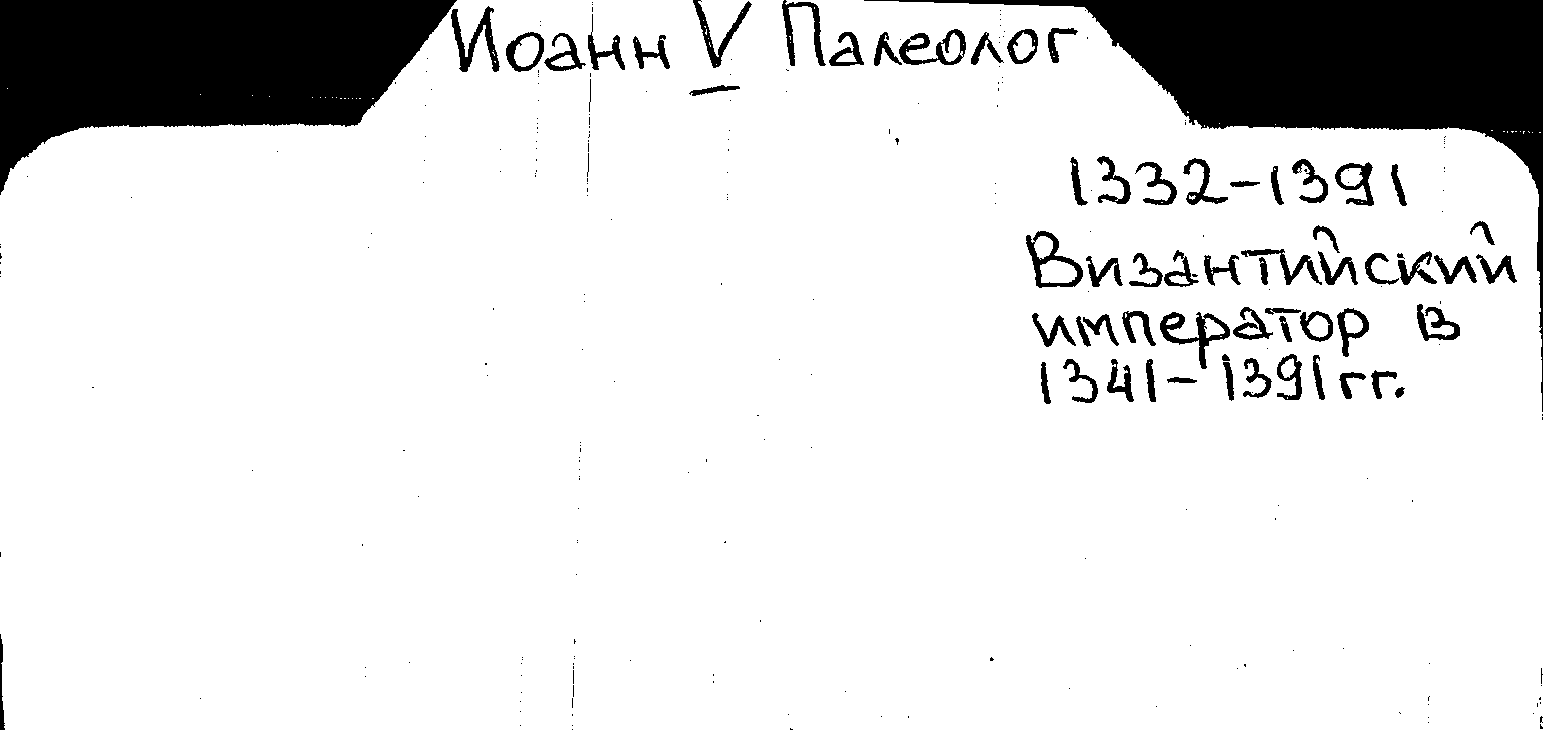 Иоанн V Палеолог
1332-1391
Византийский
император в
1341-1391гг.